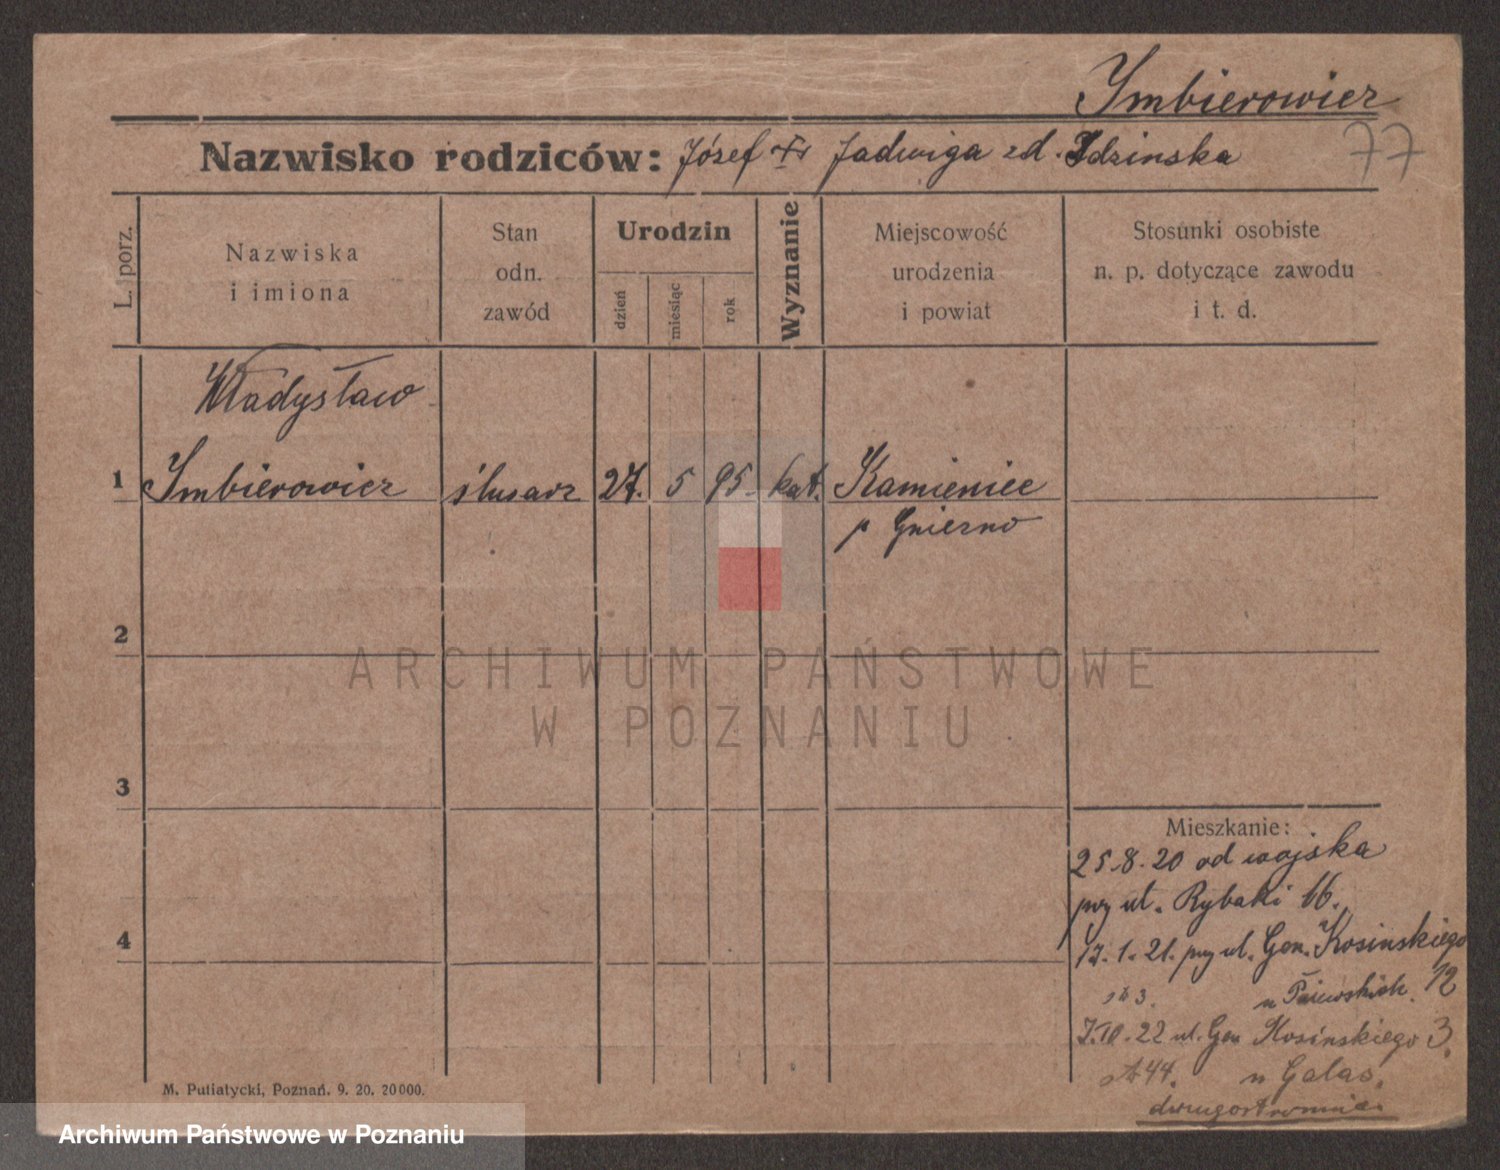 Imbierowicz
77
Nazwisko rodziców: Józef i Jadwiga zd. Idzinska
L. porz.
Nazwiska
i imiona
Stan
odn.
zawód
Urodzin
dzień
miesiąc
rok
Wyznanie
Miejscowość
urodzenia
i powiat
Stosunki osobiste
n. p. dotyczące zawodu
i t. d.
Władysław
1 Imbierowicz ślusarz 27. 5 95. kat. Kamieniec
p Gniezno
2
3
4
ARCHIWUM PAŃSTWOWE
W POZNANIU
Mieszkanie:
25.8.20 od wojska
przy ul. Rybaki 16.
17.1.21. przy ul. Gen. Kosinskiego
12
3. u
22 ul. Gen Kosinskiego 3.
44. u Galas.
dwugostronnie.
M. Putiatycki, Poznań. 9. 20. 20000.
Archiwum Państwowe w Poznaniu